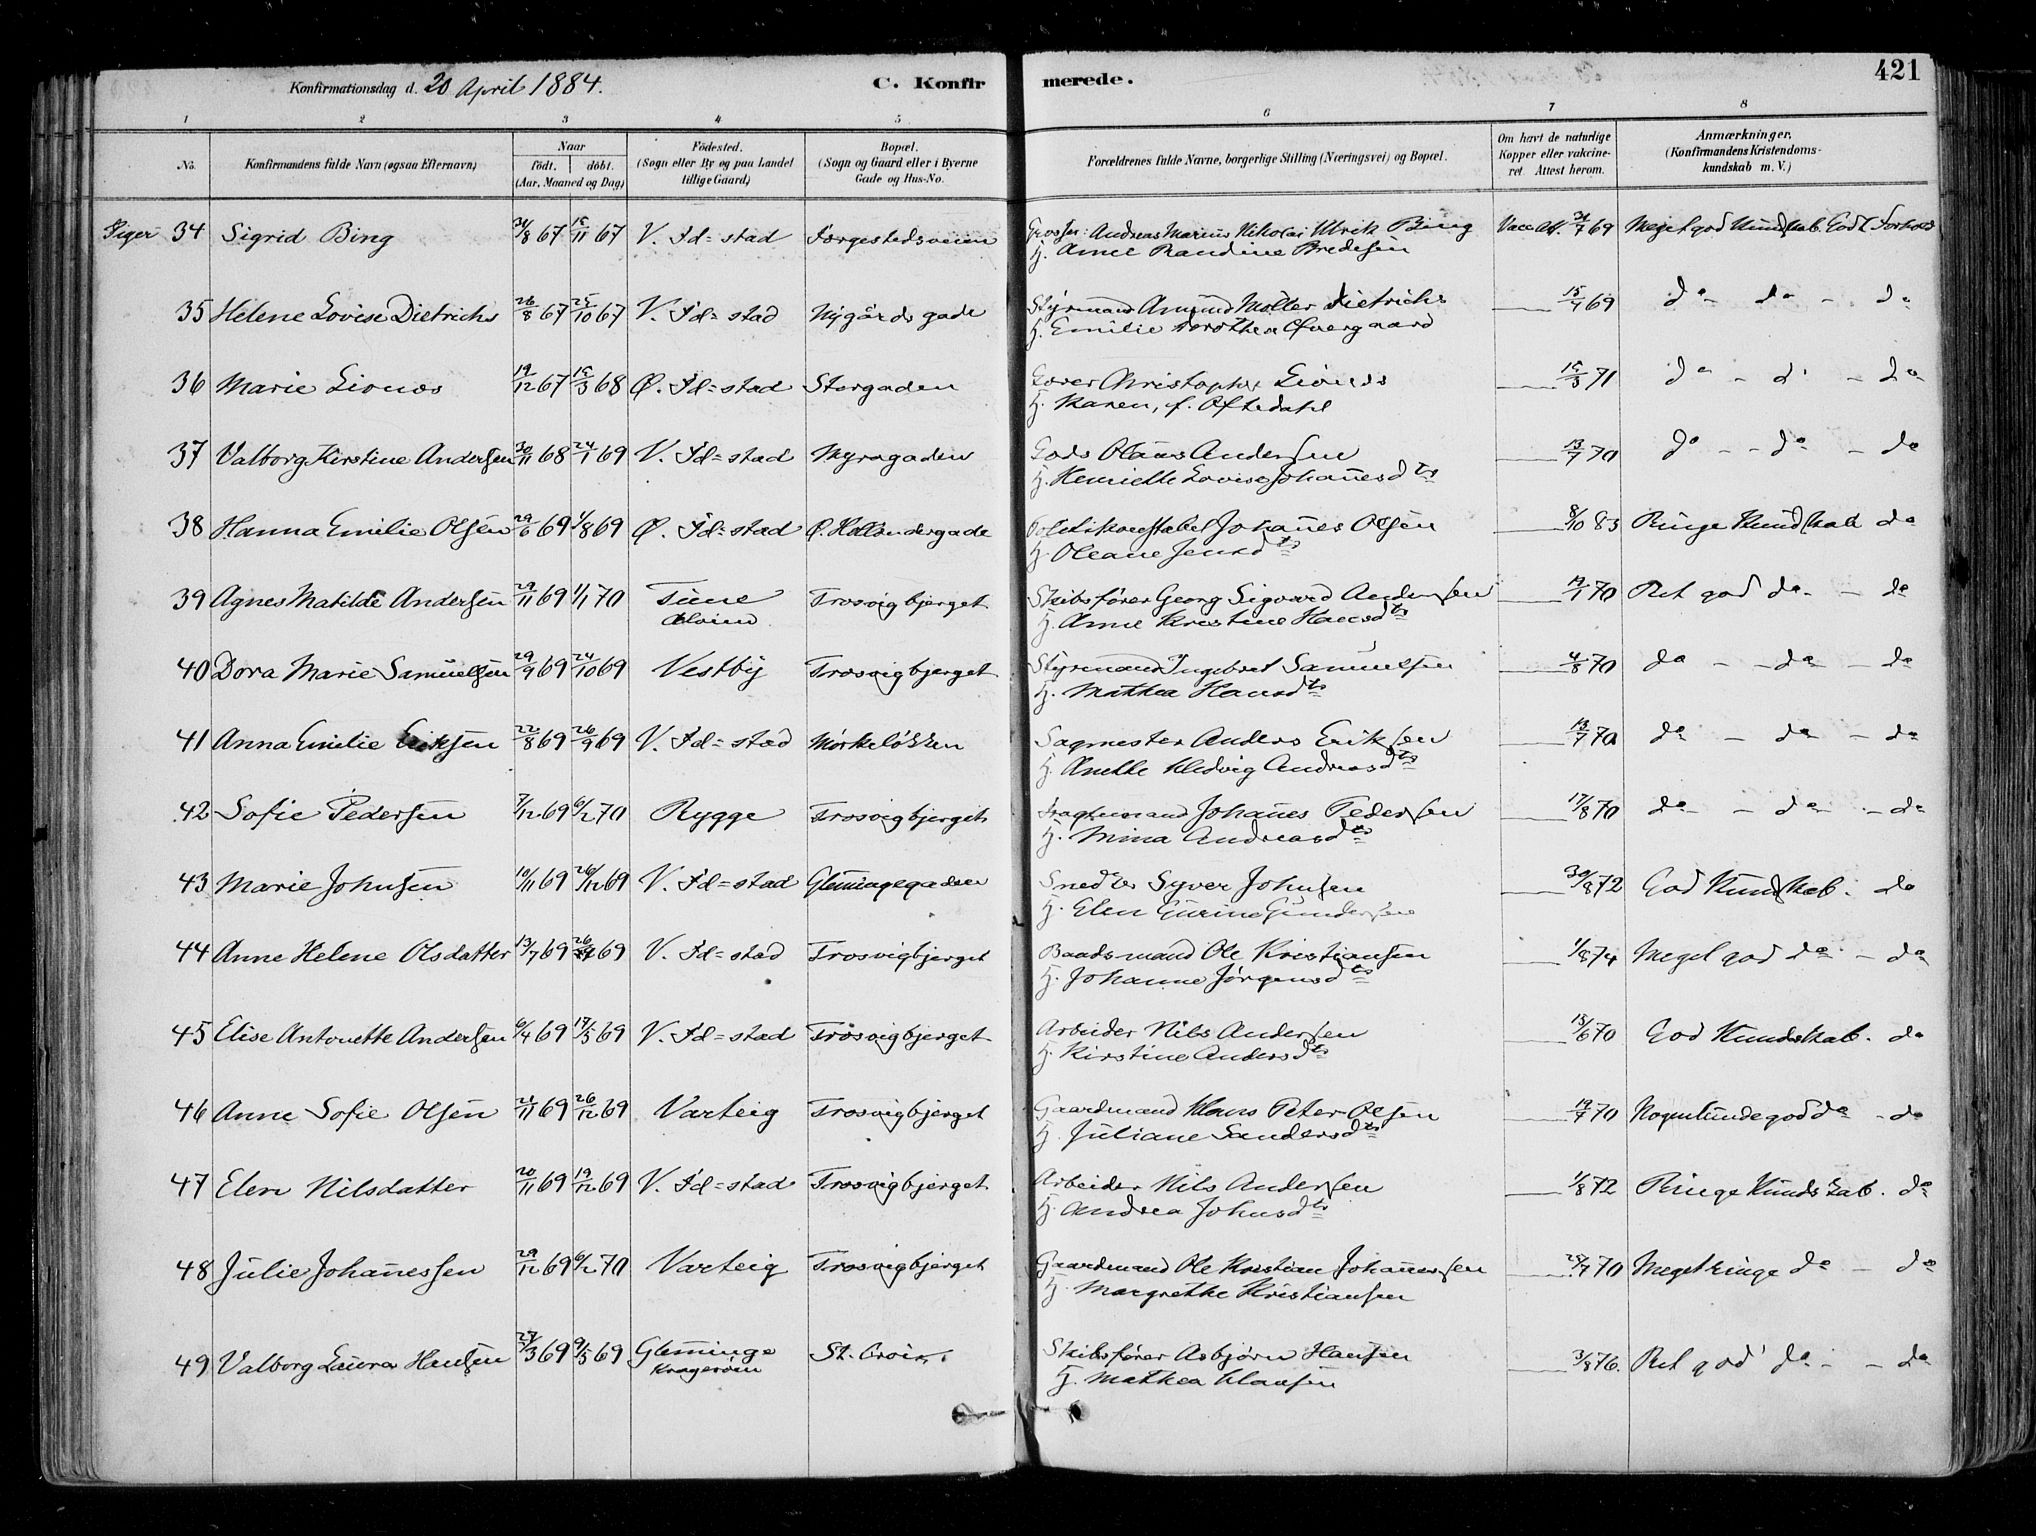 Konfirmationsdag d. 20 April 1884.
C. Konfirmerede.
421
1 2 3 4 5 6 7 8
No.
Konfirmandens fulde Navn (ogsaa Efternavn)
Naar
født. døbt.
(Aar, Maaned og Dag)
Fødested.
(Sogn eller By og paa Landet
tillige Gaard)
Bopæl.
(Sogn og Gaard eller i Byerne
Gade og Hus-No.
Forældrenes fulde Navne, borgerlige Stilling (Næringsvei) og Bopæl.
Om havt de naturlige
Kopper eller vakcine-
ret. Attest herom.
Anmærkninger.
(Konfirmandens Kristendoms-
kundskab m. V.)
Piger 34 Sigrid Bing 31/8 67 15/11 67 V. Fd=stad Færgestedsveien Grosser: Andreas Marius Nikolai Ulrik Bing Vacc. Att. 67 Meget god Kundskab. Godt Forhold
H. Anne Randine Bredesen
35 Helene Lovise Dietrichs 26/8 67 25/10 67 V. Fd=stad Nygårdsgade Styrmand Amund Møller Dietrichs 15/7 69 do - do - do
H. Emilie Dorothea Overgaard
36 Marie Lionæs 19/12 67 15/3 68 Ø. Fd=stad Storgaden Christopher Lionæs 15/3 71 do - do - do
H. Karen, f. Oftedahl
37 Valborg Kirstine Andersen 30/11 68 24/1 69 V. Fd=stad Myragaden Olaus Andersen 13/7 70 do - do - do
H. Henriette Lovise Johannesdtr
38 Hanna Emilie Olsen 29/6 69 1/8 69 Ø. Fd=stad Ø. Hollændergade Politikonstabel Johannes Olsen 8/10 83 Ringe Kundskab do
H. Oleane Jensdtr
39 Agnes Matilde Andersen 29/11 69 1/1 70 Tune Trosvigbjerget Skibsfører Georg Sigvard Andersen 19/7 70 Ret god do - do
Alvim H. Anne Kristine Hansdtr
40 Dora Marie Samuelsen 29/9 69 24/10 69 Vestby Trosvigbjerget Styrmand Ingebret Samuelsen 4/8 70 do - do - do
H. Mathea Hansdtr
41 Anna Emilie Eriksen 22/8 69 26/9 69 V. Fd=stad Mørkeløkken Sagmester Anders Eriksen 13/7 70 do - do - do
H. Anette Hedvig Andreasdtr
42 Sofie Pedersen 7/12 69 6/2 70 Rygge Trosvigbjerget Johannes Pedersen 17/8 70 do - do - do
H. Mina Andreasdtr
43 Marie Johnsen 10/11 69 26/12 69 V. Fd=stad Glemmegegaden Snedker Syver Johnsen 30/8 72 God Kundskab. do
H. Elen Gurine Gundersen
44 Anne Helene Olsdatter 13/7 69 69 V. Fd=stad Trosvigbjerget Baadsmand Ole Kristiansen 1/8 74 Meget god do - do
H. Johanne Jørgensdtr
45 Elise Antonette Andersen 6/4 69 17/5 69 V. Fd=stad Trosvigbjerget Arbeider Nils Andersen 18/6 70 God Kundskab. do
H. Kirstine Andersdtr
46 Anne Sofie Olsen 21/11 69 26/12 69 Varteig Trosvigbjerget Gaardmand Hans Peter Olsen 19/7 70 Nogenlunde god do - do
H. Juliane Sandersdtr
47 Elen Nilsdatter 20/11 69 19/12 69 V. Fd=stad Trosvigbjerget Arbeider Nils Andersen 1/8 72 Ringe Kundskab. do
H. Andrea Johnsdtr
48 Julie Johannessen 29/12 69 6/2 70 Varteig Trosvigbjerget Gaardmand Ole Kristian Johannessen 70 Meget ringe do - do
H. Margrethe Kristiansen
49 Valborg Laura Hansen 27/3 69 9/5 69 Glemminge St. Croix. Skibsfører Asbjørn Hansen 3/8 76. Ret god do - - do
Kragerøen H. Mathea Klausen